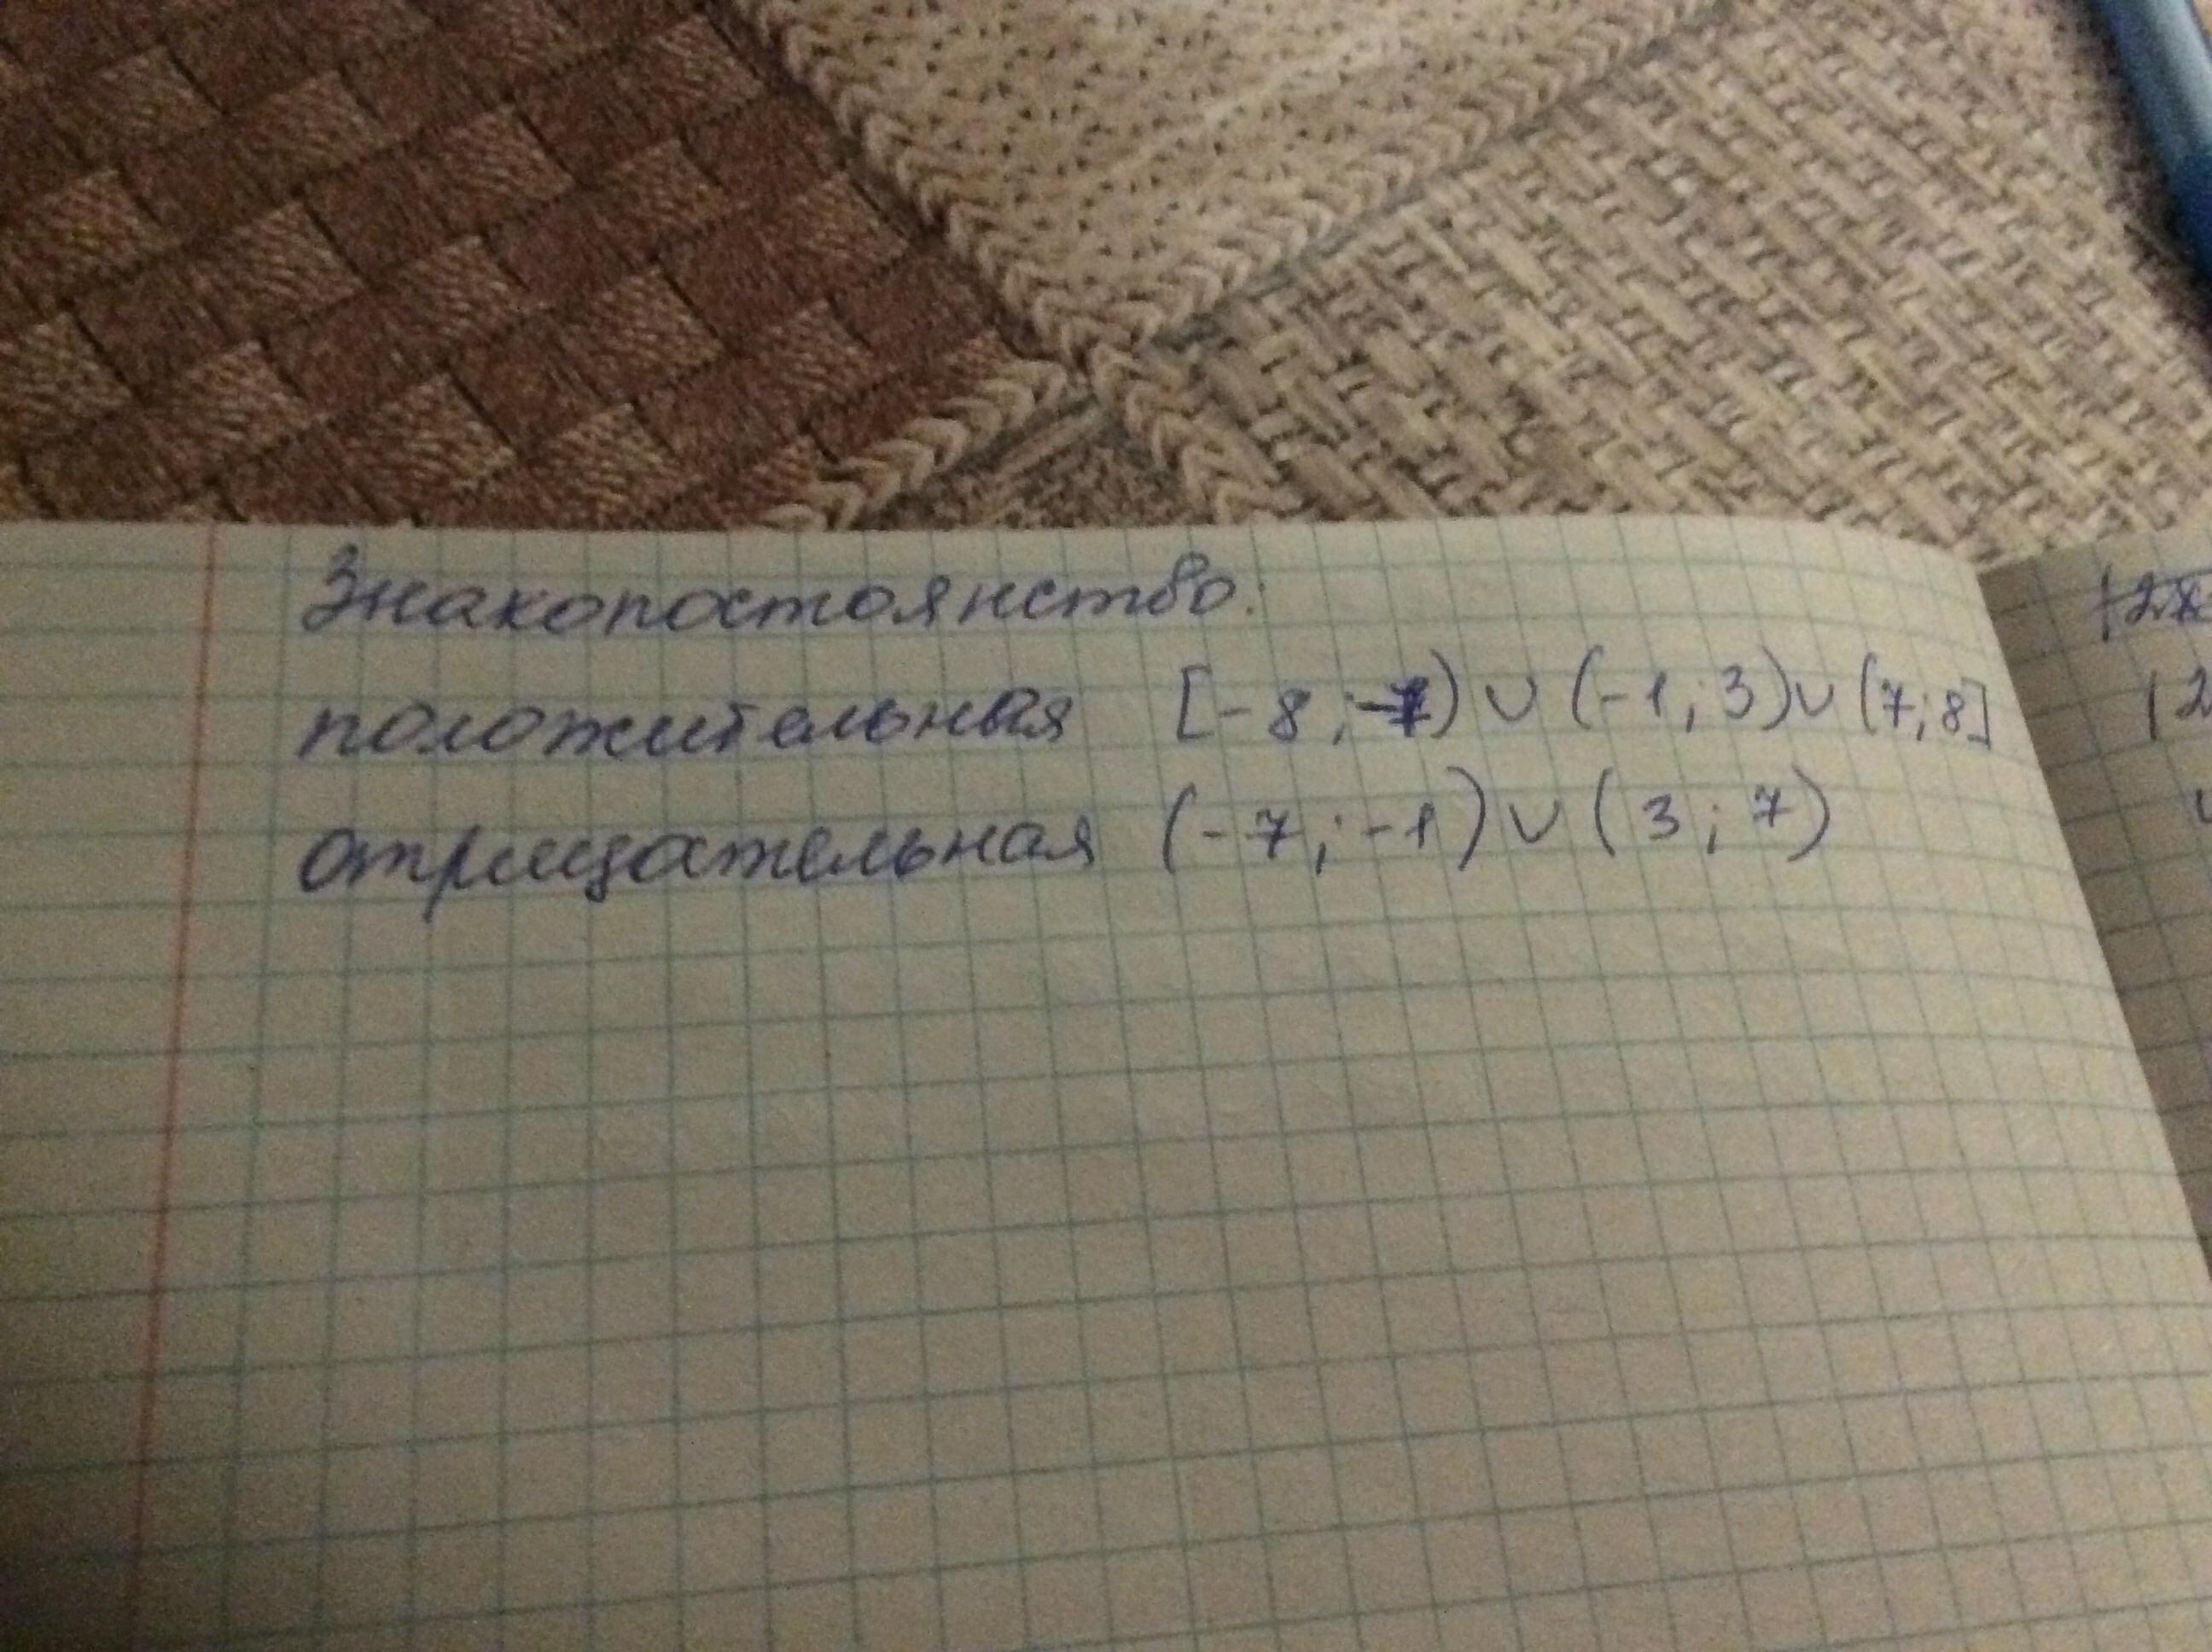 Знакопостоянство:
положительная [-8; -7) ∪ (-1; 3) ∪ (7; 8]
отрицательная (-7; -1) ∪ (3; 7)